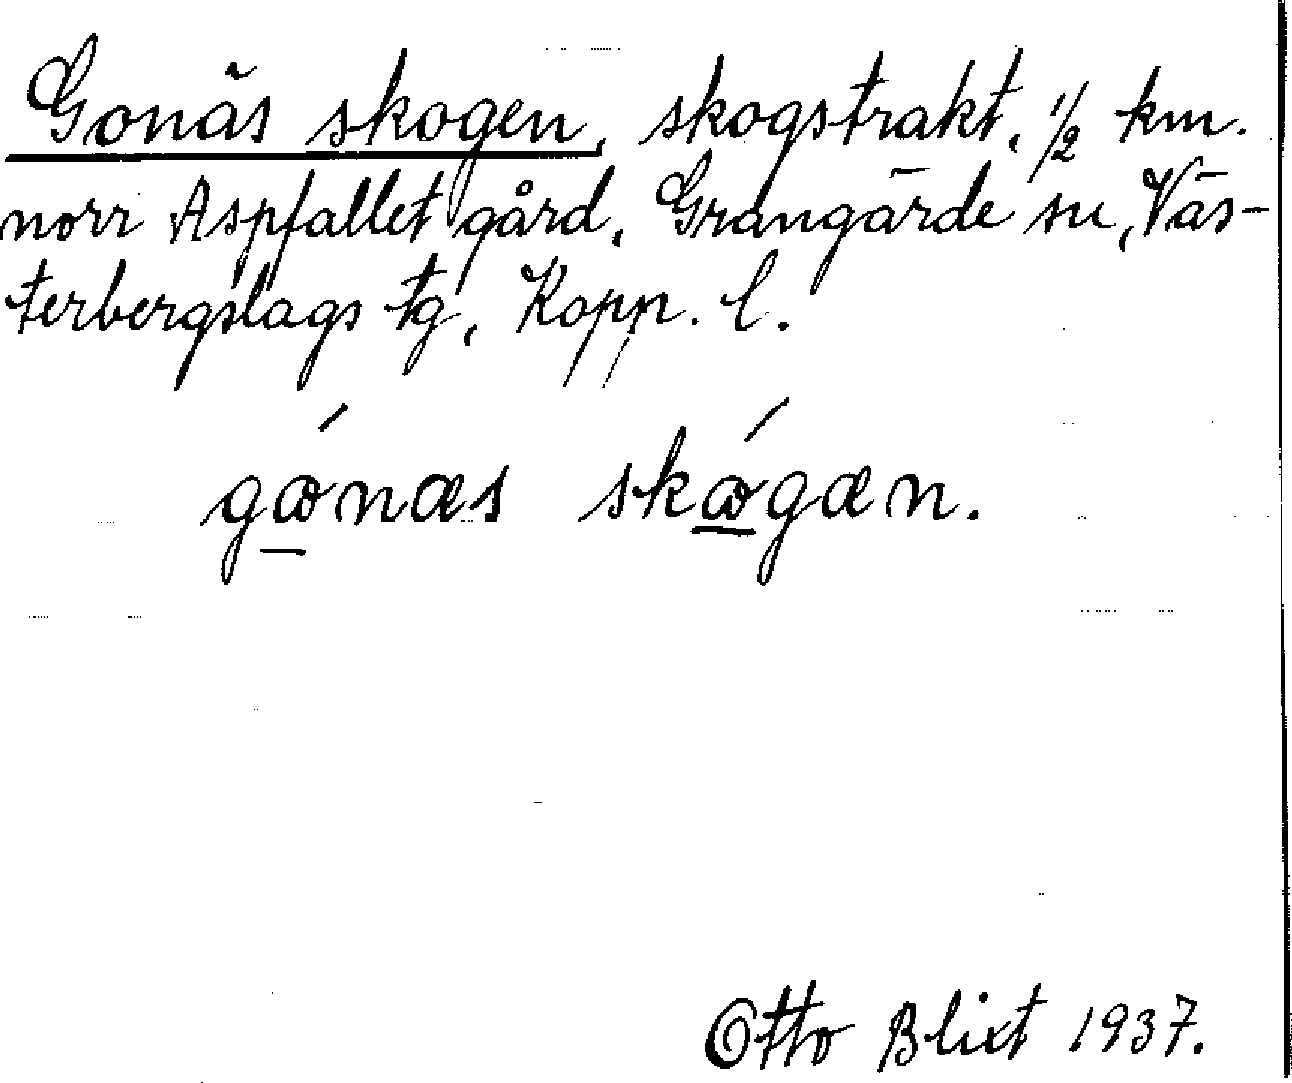 Gonäs skogen, skogstrakt, 1/2 km.
norr Aspfallet gård, Grangärde sn, Väs-
terbergslags tg, Kopp. l.
gɷ́næs skɷ́gæn.
Otto Blixt 1937.